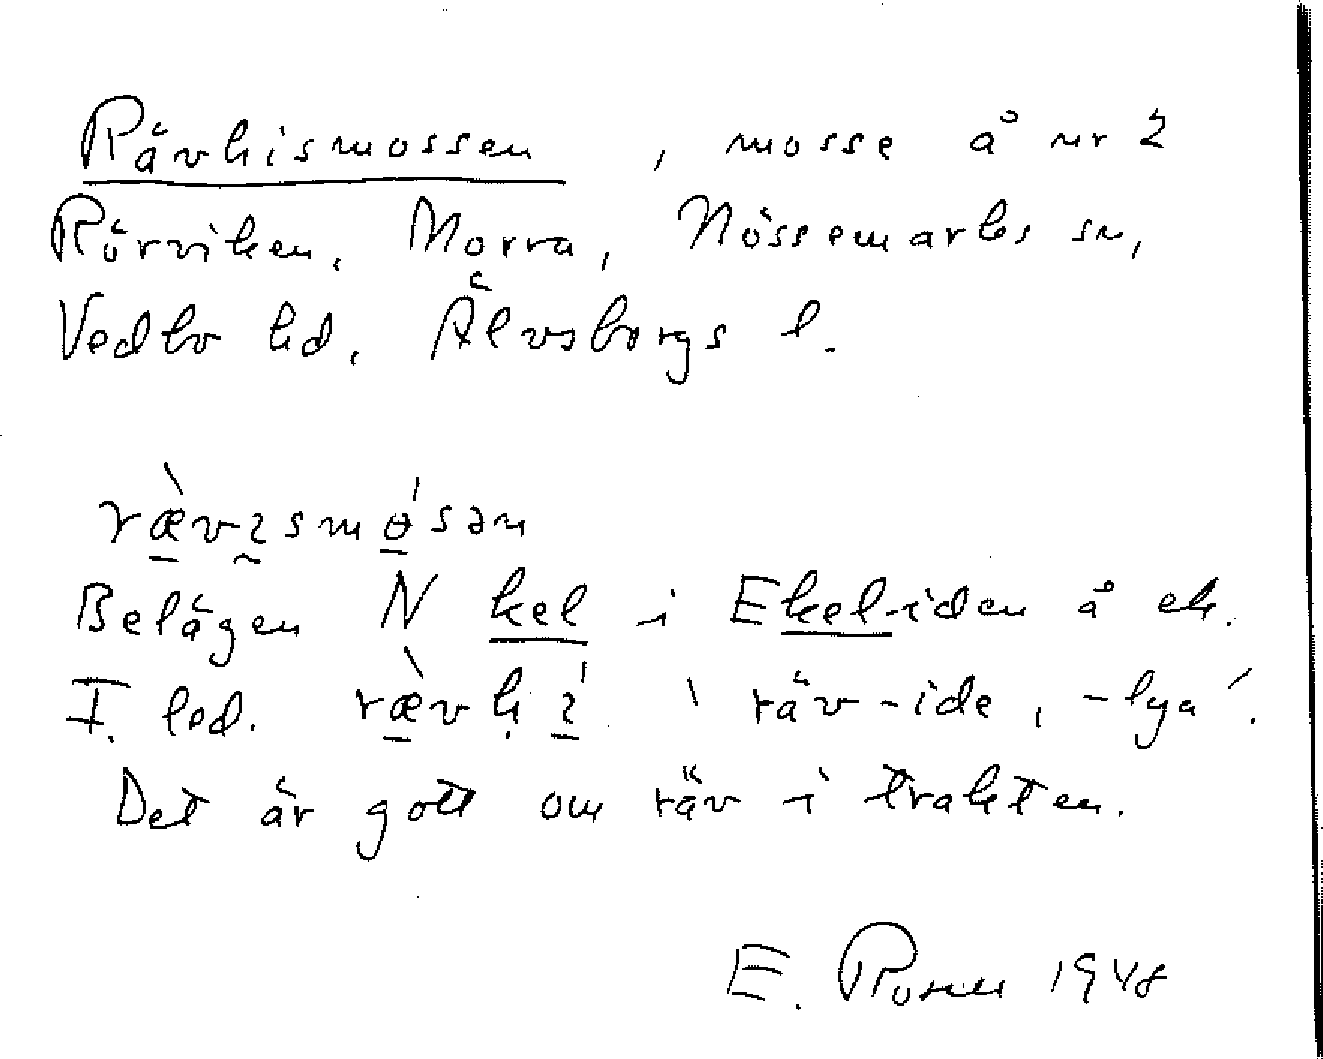 Rävhismossen, mosse å nr 2
Rörviken, Morra, Nössemarks sn,
Vedbo hd. Älvsborgs l.
Belägen N kel i Ekel-iden å ek.
I. led. 'räv-ide, -lya'.
Det är gott om räv i trakten.
E. 1948